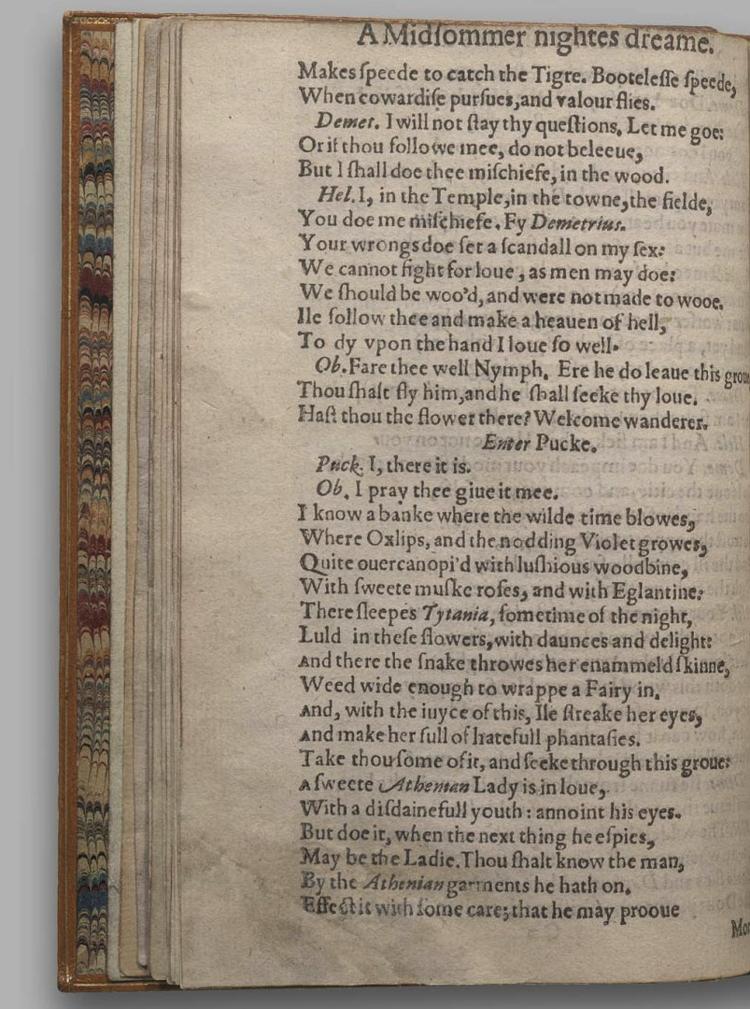 A Midſommer nightes dreame.
Makes ſpeede to catch the Tigre. Booteleſſe ſpeede,
When cowardiſe purſues, and valour flies.
Demet. I will not ſtay thy queſtions. Let me goe:
Or if thou followe mee, do not beleeue,
But I ſhall doe thee miſchiefe, in the wood.
Hel. I, in the Temple, in the towne, the fielde,
You doe me miſchiefe. Fy Demetrius.
Your wrongs doe ſet a ſcandall on my ſex:
We cannot fight for loue, as men may doe:
We ſhould be woo'd, and were not made to wooe.
Ile follow thee and make a heauen of hell,
To dy vpon the hand I loue ſo well.
Ob. Fare thee well Nymph. Ere he do leaue this
Thou ſhalt fly him, and he ſhall ſeeke thy loue.
Haſt thou the flower there? Welcome wanderer.
Enter Pucke.
Puck. I, there it is.
Ob. I pray thee giue it mee.
I know a banke where the wilde time blowes,
Where Oxlips, and the nodding Violet growes,
Quite ouercanopi'd with luſhious woodbine,
With ſweete muſke roſes, and with Eglantine:
There ſleepes Tytania, ſometime of the night,
Luld in theſe flowers, with daunces and delight:
And there the ſnake throwes her enammeld ſkinne,
Weed wide enough to wrappe a Fairy in.
And, with the iuyce of this, Ile ſtreake her eyes,
And make her full of hatefull phantaſies.
Take thou ſome of it, and ſeeke through this groue:
A ſweete Athenian Lady is in loue,
With a diſdainefull youth: annoint his eyes.
But doe it, when the next thing he eſpies,
May be the Ladie. Thou ſhalt know the man,
By the Athenian garments he hath on.
Effect it with ſome care; that he may prooue